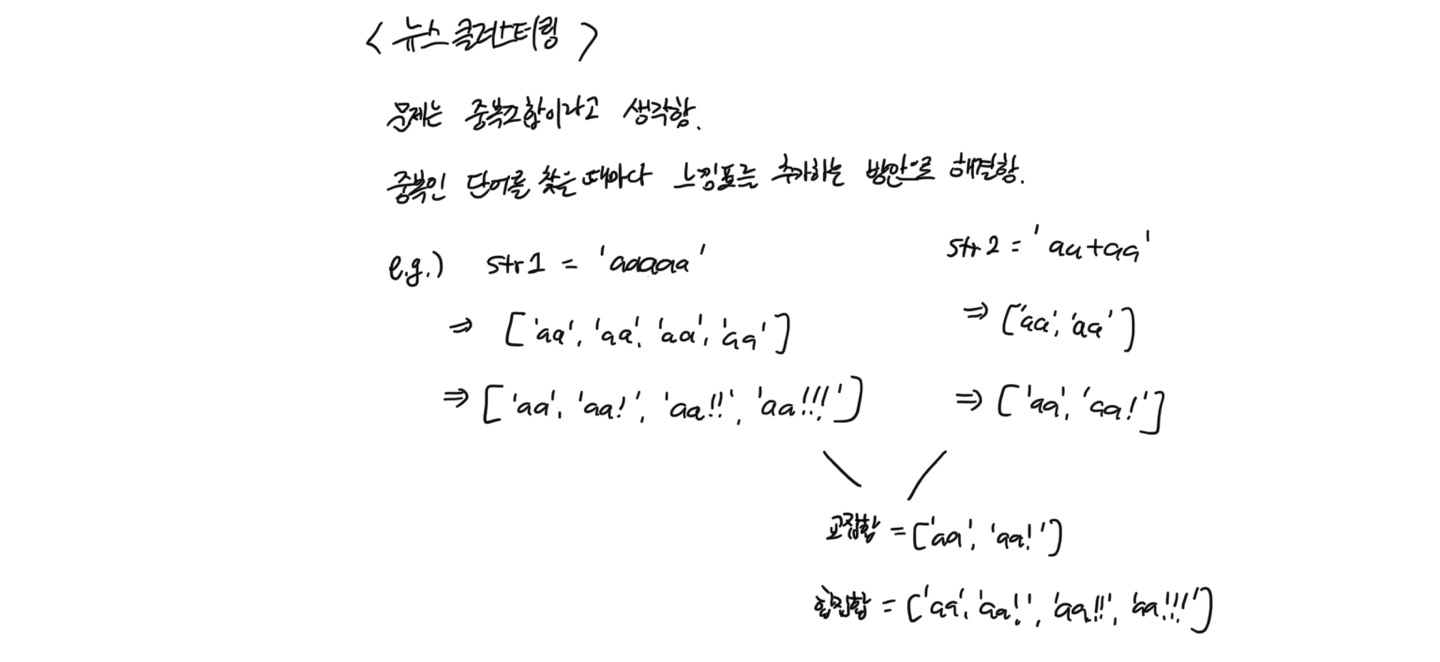 < 뉴스 클러스터링 >
문제는 중복조합이라고 생각함.
중복인 단어를 찾을 때마다 느낌표를 추가하는 방안으로 해결함.
e.g.) str1 = 'aaaaa' str2 = 'aa+aa'
⇒ ['aa', 'aa', 'aa', 'aa'] ⇒ ['aa', 'aa']
⇒ ['aa', 'aa!', 'aa!!', 'aa!!!'] ⇒ ['aa', 'aa!']
교집합 = ['aa', 'aa!']
합집합 = ['aa', 'aa!', 'aa!!', 'aa!!!']